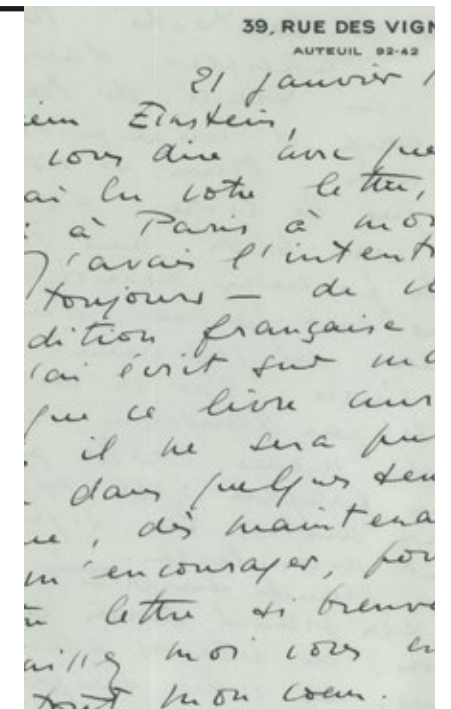 39, RUE DES VIGN
AUTEUIL 92-42
21 janvier 1
Einstein,
vous dire avec
ai lu votre lettre,
à Paris à mon
J'avais l'intent
toujours — de
dition française
'ai écrit sur ma
que ce livre aur
il ne sera pu
dans quelques sem
, dès maintena
m'encourager, pou
lettre si bienve
moi vous en
tout mon coeur.